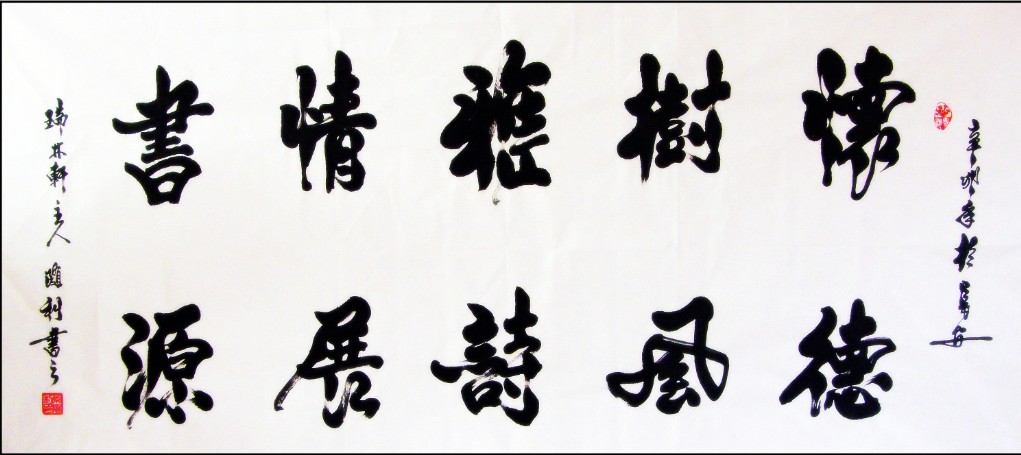 辛卯年於安
懷德
樹風
雅詩
情展
書源
瑞林軒主人利書之